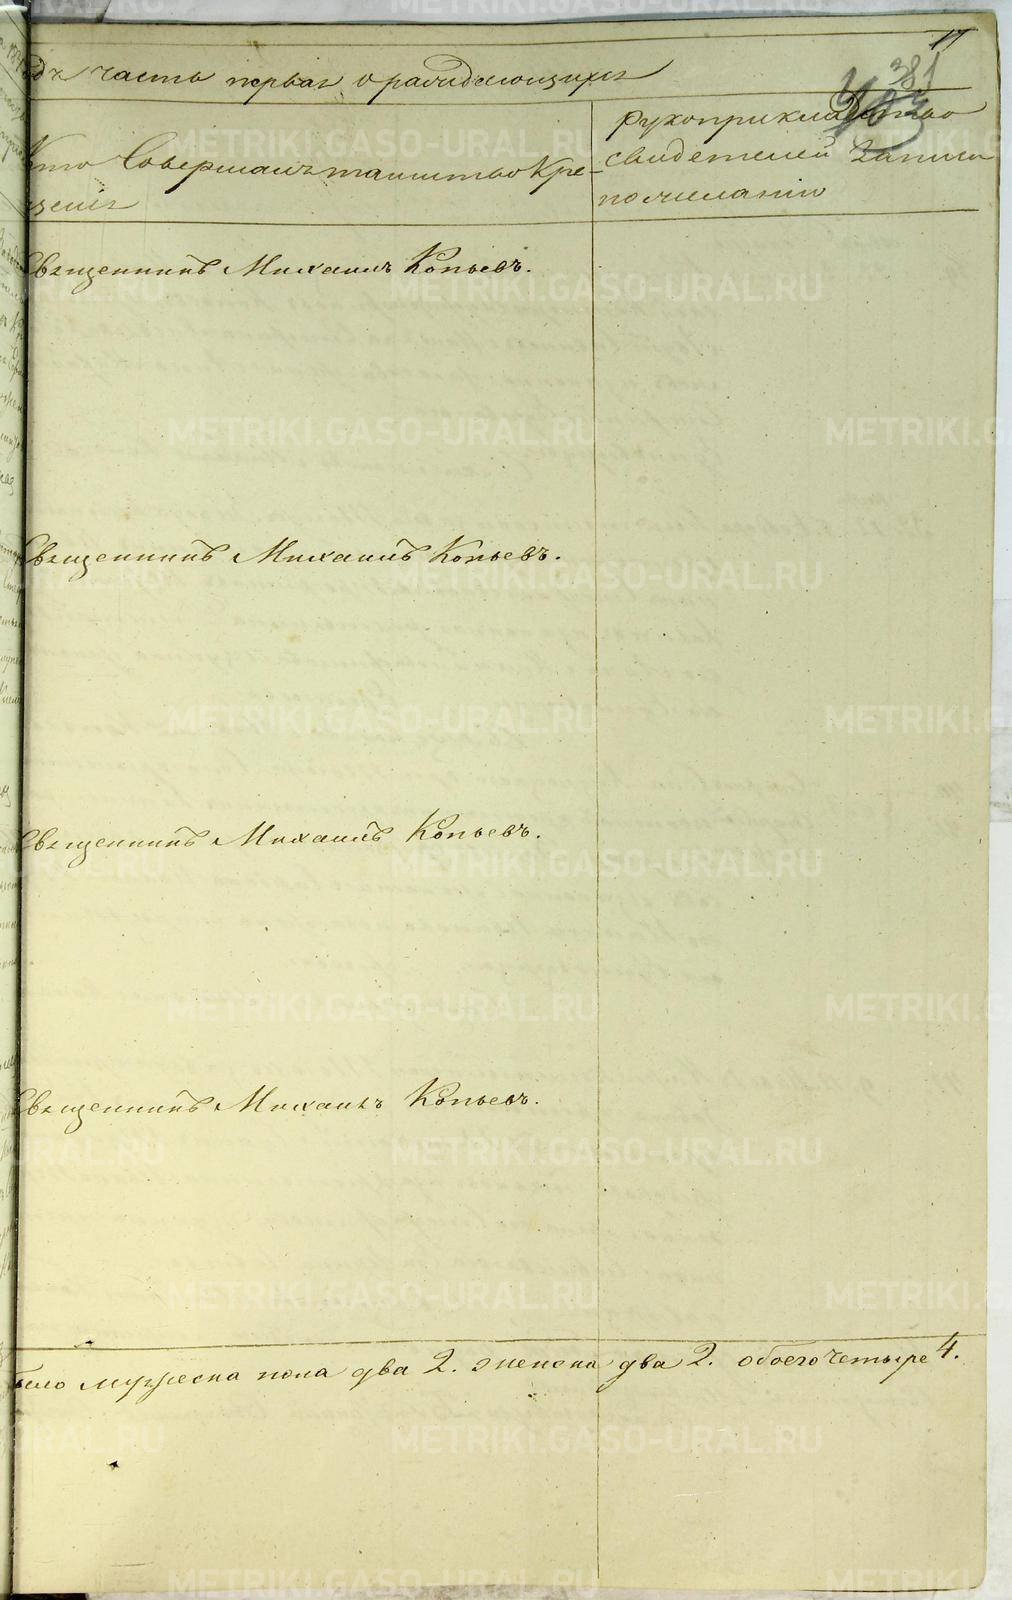 17
381
403
одъ часть первая о раждающихся
Кто Совершалъ таинство Кре-
щенія
рукоприкладство
свидетелей записи
по желанію
Священникъ Михаилъ Копьевъ.
Священникъ Михаилъ Копьевъ.
Священникъ Михаилъ Копьевъ.
Священникъ Михаилъ Копьевъ.
было мужеска пола два 2. женска два 2. обоего четыре 4.
METRIKI.GASO-URAL.RU